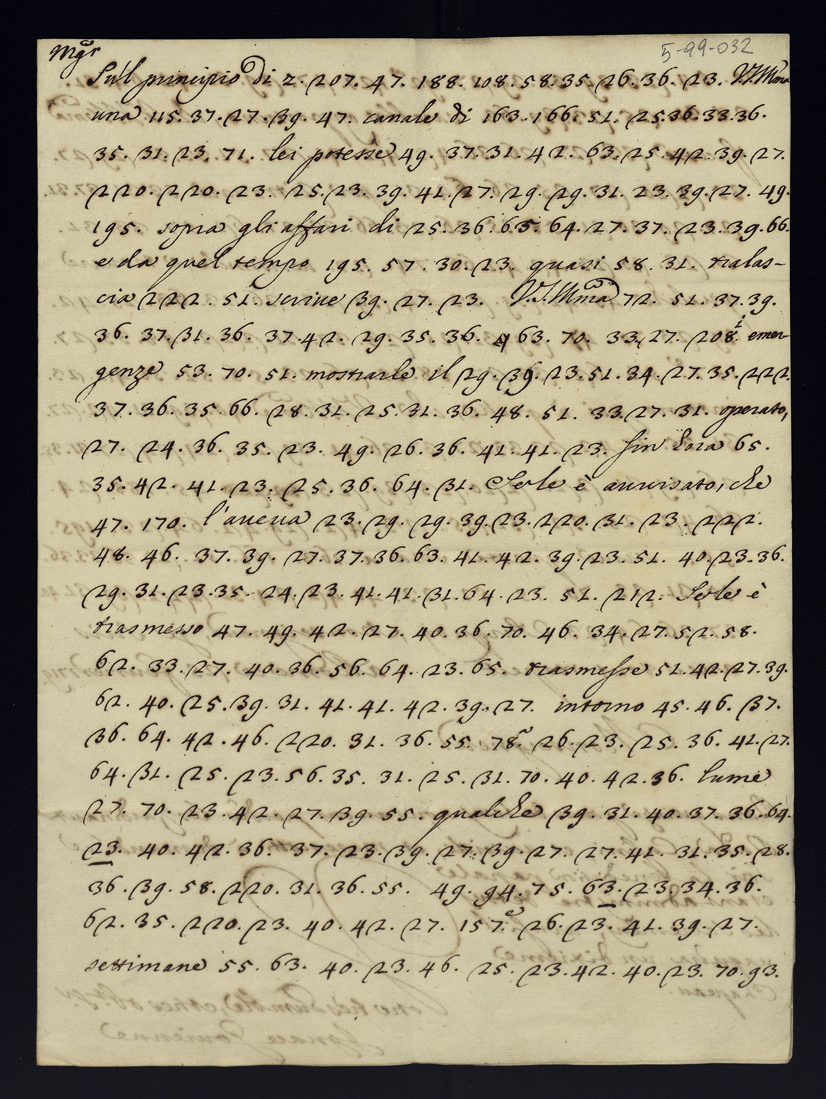 Mgr
5-99-032
Sul principio di 2. 207. 47. 188. 108. 58. 35. 26. 36. 23. V.S.Illma
una 115. 37. 27. 39. 47. canale di 163. 166. 51. 25. 36. 33. 36.
35. 31. 23. 71. lei potesse 49. 37. 31. 42. 63. 25. 42. 39. 27.
220. 220. 23. 25. 23. 39. 41. 27. 29. 29. 31. 23. 39. 27. 49.
195. sopra gli affari di 25. 36. 65. 64. 27. 37. 23. 39. 66.
e da quel tempo 195. 57. 30. 23. quasi 58. 31. tralas-
cia 222. 51. scrive 39. 27. 23. V.S.Illma 72. 51. 37. 39.
36. 37. 31. 36. 37. 42. 29. 35. 36. 63. 70. 33. 27. 208. emer-
genze 53. 70. 51. mostrarle il 29. 39. 23. 51. 34. 27. 35. 222.
37. 36. 35. 66. 28. 31. 25. 31. 36. 48. 51. 33. 27. 31. operato,
27. 24. 36. 35. 23. 49. 26. 36. 41. 41. 23. fin hora 65.
35. 42. 41. 23. 25. 36. 64. 31. Sole è avvisato, che
47. 170. l'aveva 23. 29. 29. 39. 23. 220. 31. 23. 222.
48. 46. 37. 39. 27. 37. 36. 63. 41. 42. 39. 23. 51. 40. 23. 36.
29. 31. 23. 35. 24. 23. 41. 41. 31. 64. 23. 51. 212. Sole è
trasmesso 47. 49. 42. 27. 40. 36. 70. 46. 34. 27. 52. 58.
62. 33. 27. 40. 36. 56. 64. 23. 65. trasmesse 51. 42. 27. 39.
62. 40. 25. 39. 31. 41. 41. 42. 39. 27. intorno 45. 46. 37.
36. 64. 42. 46. 220. 31. 36. 55. 78. 26. 23. 25. 36. 41. 27.
64. 31. 25. 23. 56. 35. 31. 25. 31. 70. 40. 42. 36. lume
27. 70. 23. 42. 27. 39. 55. qualche 39. 31. 40. 37. 36. 64.
23. 40. 42. 36. 37. 23. 39. 27. 39. 27. 27. 41. 31. 35. 28.
36. 39. 58. 220. 31. 36. 55. 49. 94. 75. 63. 23. 34. 36.
62. 35. 220. 23. 40. 42. 27. 157. 26. 23. 41. 39. 27.
settimane 55. 63. 40. 23. 46. 25. 23. 42. 40. 23. 70. 93.